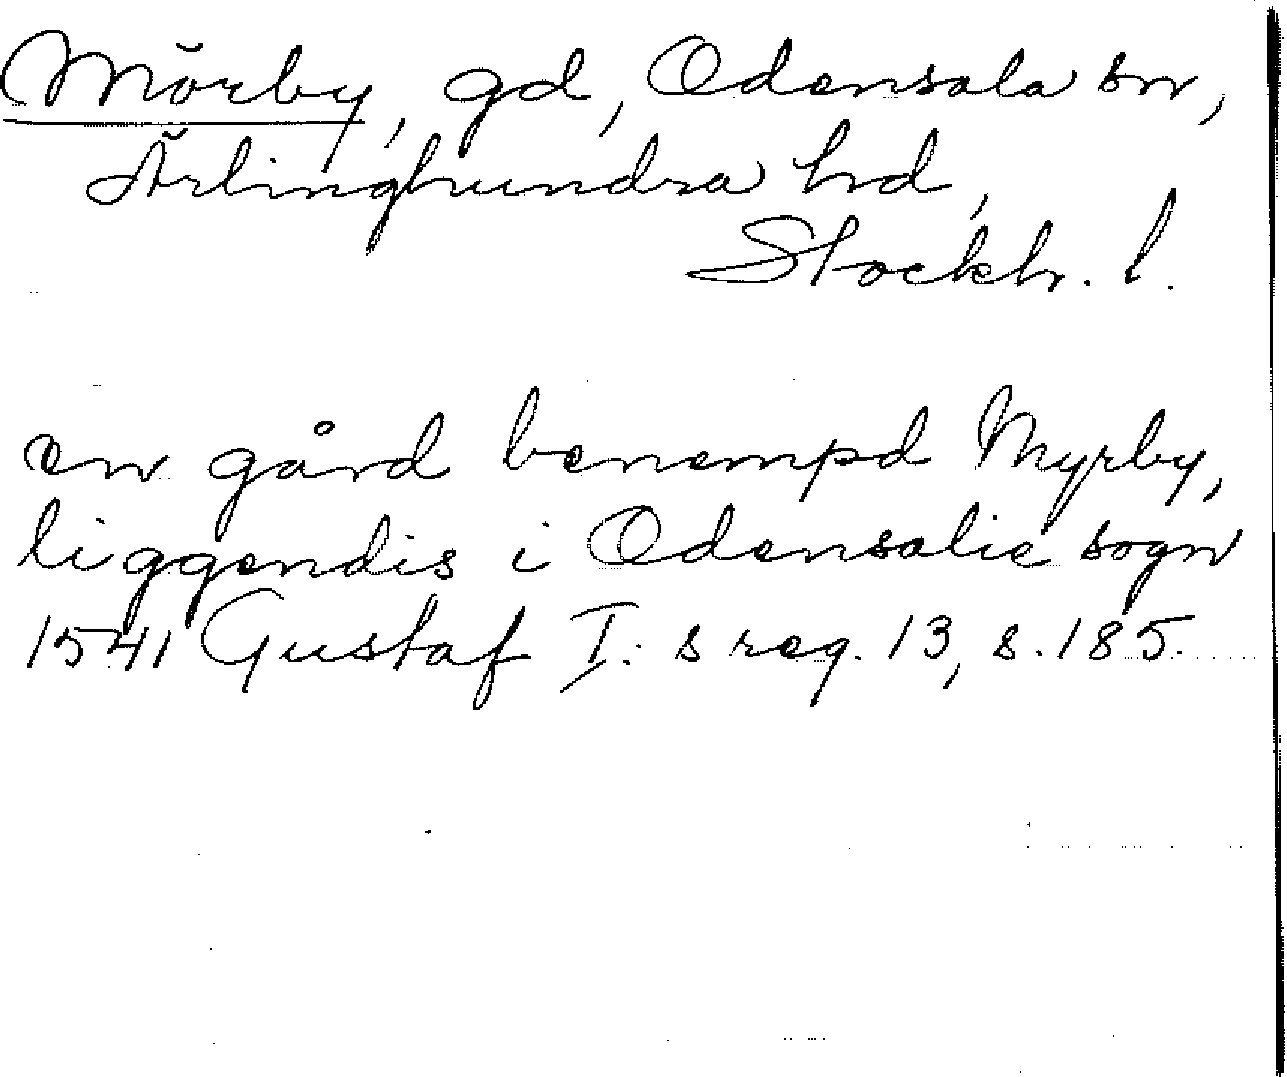 Mörby, gd, Odensala sn,
Ärlinghundra hd,
Stockh. l.
en gård benempd Myrby,
liggendis i Odensalie sogn
1541 Gustaf I:s reg. 13, s. 185.